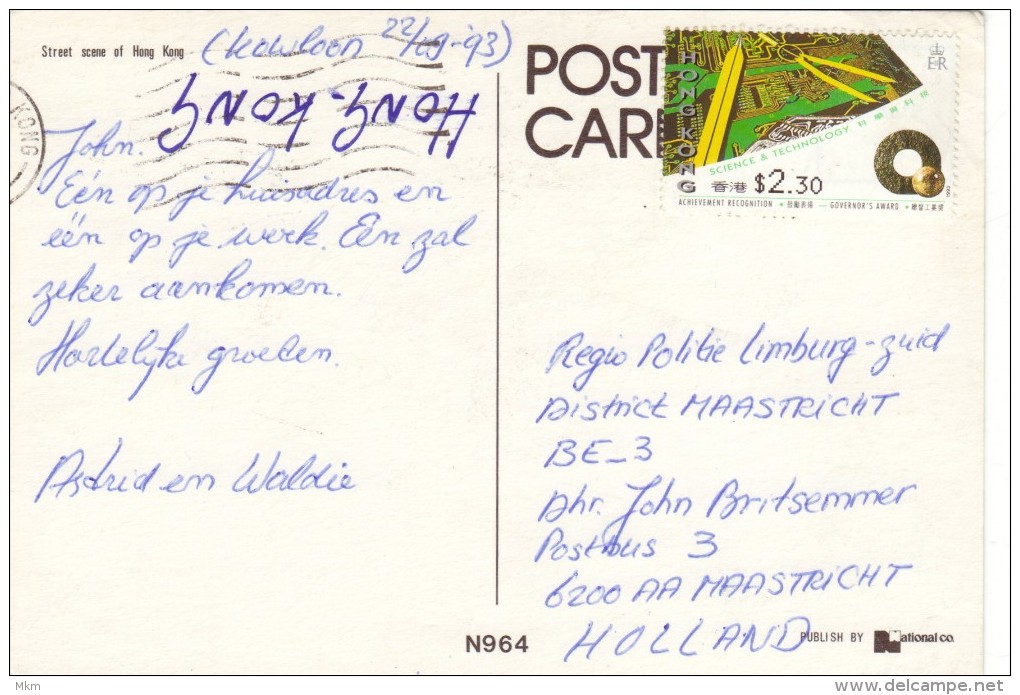 Street scene of Hong Kong
(Kowloon 22/09-'93)
HONG-KONG
KONG
John.
Eén op je huisadres en
één op je werk. Eén zal
zeker aankomen.
Hartelijke groeten.
Astrid en Waldie
POST
CARD
HONG KONG
SCIENCE & TECHNOLOGY 科學與科技
香港 $2.30
ACHIEVEMENT RECOGNITION • 鼓勵表揚 — GOVERNOR'S AWARD • 總督工業獎
E R
Regio Politie Limburg-zuid
District MAASTRICHT
BE-3
Dhr. John Britsemmer
Postbus 3
6200 AA MAASTRICHT
HOLLAND
N964
PUBLISH BY National co.
Mkm
delcampe.net